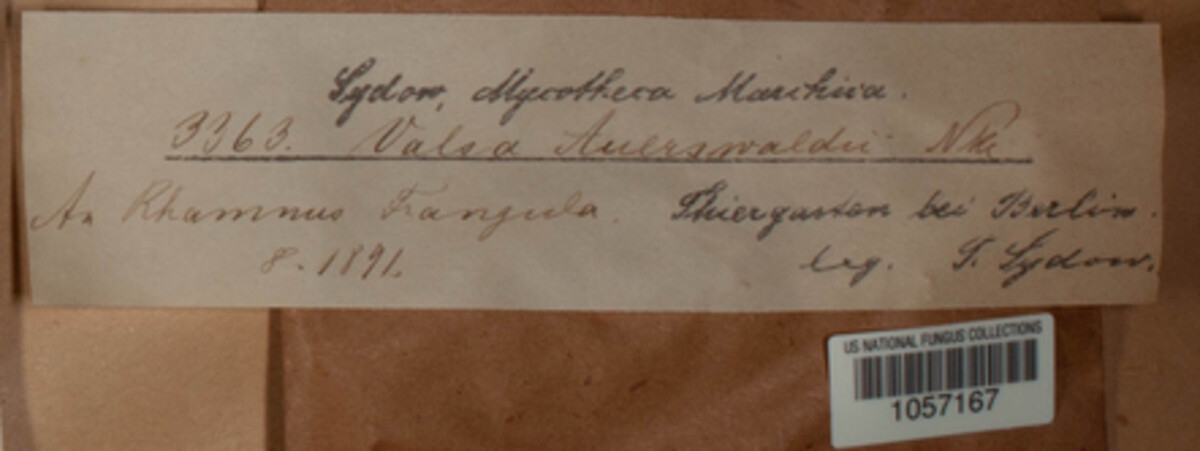 Sydow, Mycotheca Marchica.
3363. Valsa Auerswaldii Nke
An Rhamnus Frangula. Thiergarten bei Berlin.
8. 1891. leg. P. Sydow.
US NATIONAL FUNGUS COLLECTIONS
1057167